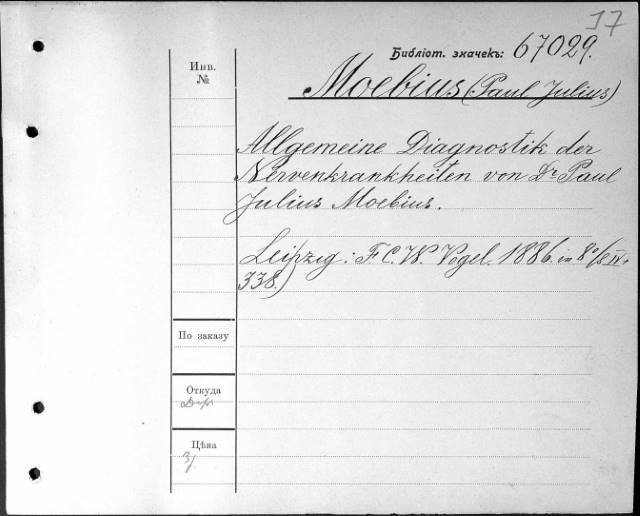 17
Библіот. значекъ: 67029.
Инв.
№
Moebius (Paul Julius)
Allgemeine Diagnostik der
Nervenkrankheiten von Dr. Paul
Julius Moebius.
Leipzig: F. C. W. Vogel. 1886. in 8°
338.)
По заказу
Откуда
Цѣна